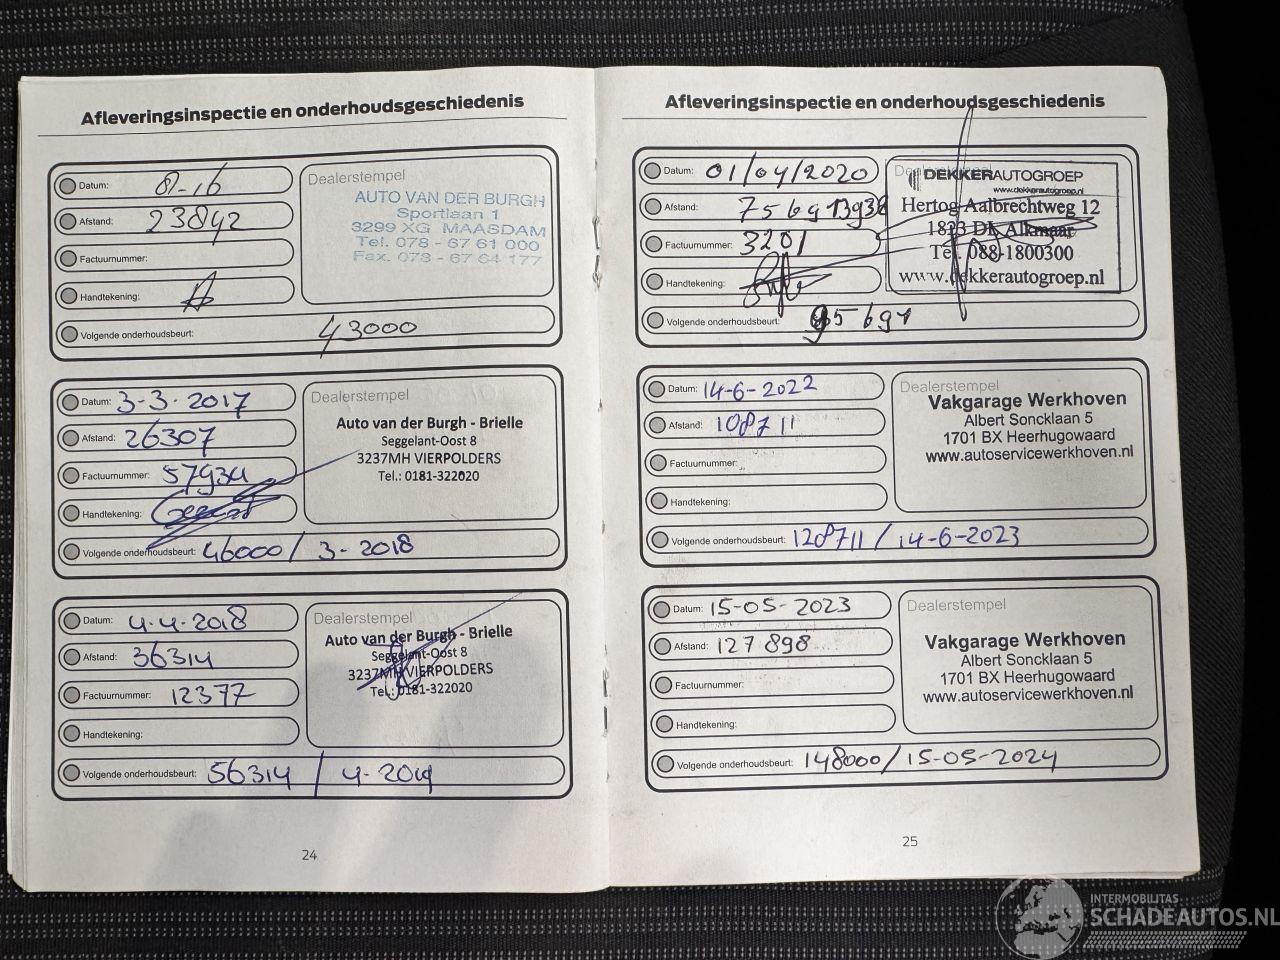 Afleveringsinspectie en onderhoudsgeschiedenis
Datum: 8-16
Afstand: 23842
Factuurnummer:
Handtekening:
Volgende onderhoudsbeurt: 43000
Dealerstempel
AUTO VAN DER BURGH
Sportlaan 1
3299 XG MAASDAM
Tel. 078 - 67 61 000
Fax. 078 - 67 64 177
Datum: 3-3-2017
Afstand: 26307
Factuurnummer: 57934
Handtekening:
Volgende onderhoudsbeurt: 46000 / 3-2018
Dealerstempel
Auto van der Burgh - Brielle
Seggelant-Oost 8
3237MH VIERPOLDERS
Tel.: 0181-322020
Datum: 4-4-2018
Afstand: 36314
Factuurnummer: 12377
Handtekening:
Volgende onderhoudsbeurt: 56314 / 4-2019
Dealerstempel
Auto van der Burgh - Brielle
Seggelant-Oost 8
3237MH VIERPOLDERS
Tel.: 0181-322020
24
Afleveringsinspectie en onderhoudsgeschiedenis
Datum: 01/04/2020
Afstand:
Factuurnummer: 3201
Handtekening:
Volgende onderhoudsbeurt: 95691
DEKKERAUTOGROEP
www.dekkerautogroep.nl
Hertog Aalbrechtweg 12
1823 DL Alkmaar
Tel. 088-1800300
www.dekkerautogroep.nl
Datum: 14-6-2022
Afstand: 108711
Factuurnummer:
Handtekening:
Volgende onderhoudsbeurt: 128711 / 14-6-2023
Dealerstempel
Vakgarage Werkhoven
Albert Soncklaan 5
1701 BX Heerhugowaard
www.autoservicewerkhoven.nl
Datum: 15-05-2023
Afstand: 127898
Factuurnummer:
Handtekening:
Volgende onderhoudsbeurt: 148000 / 15-05-2024
Dealerstempel
Vakgarage Werkhoven
Albert Soncklaan 5
1701 BX Heerhugowaard
www.autoservicewerkhoven.nl
25
INTERMOBILITAS
SCHADEAUTOS.NL